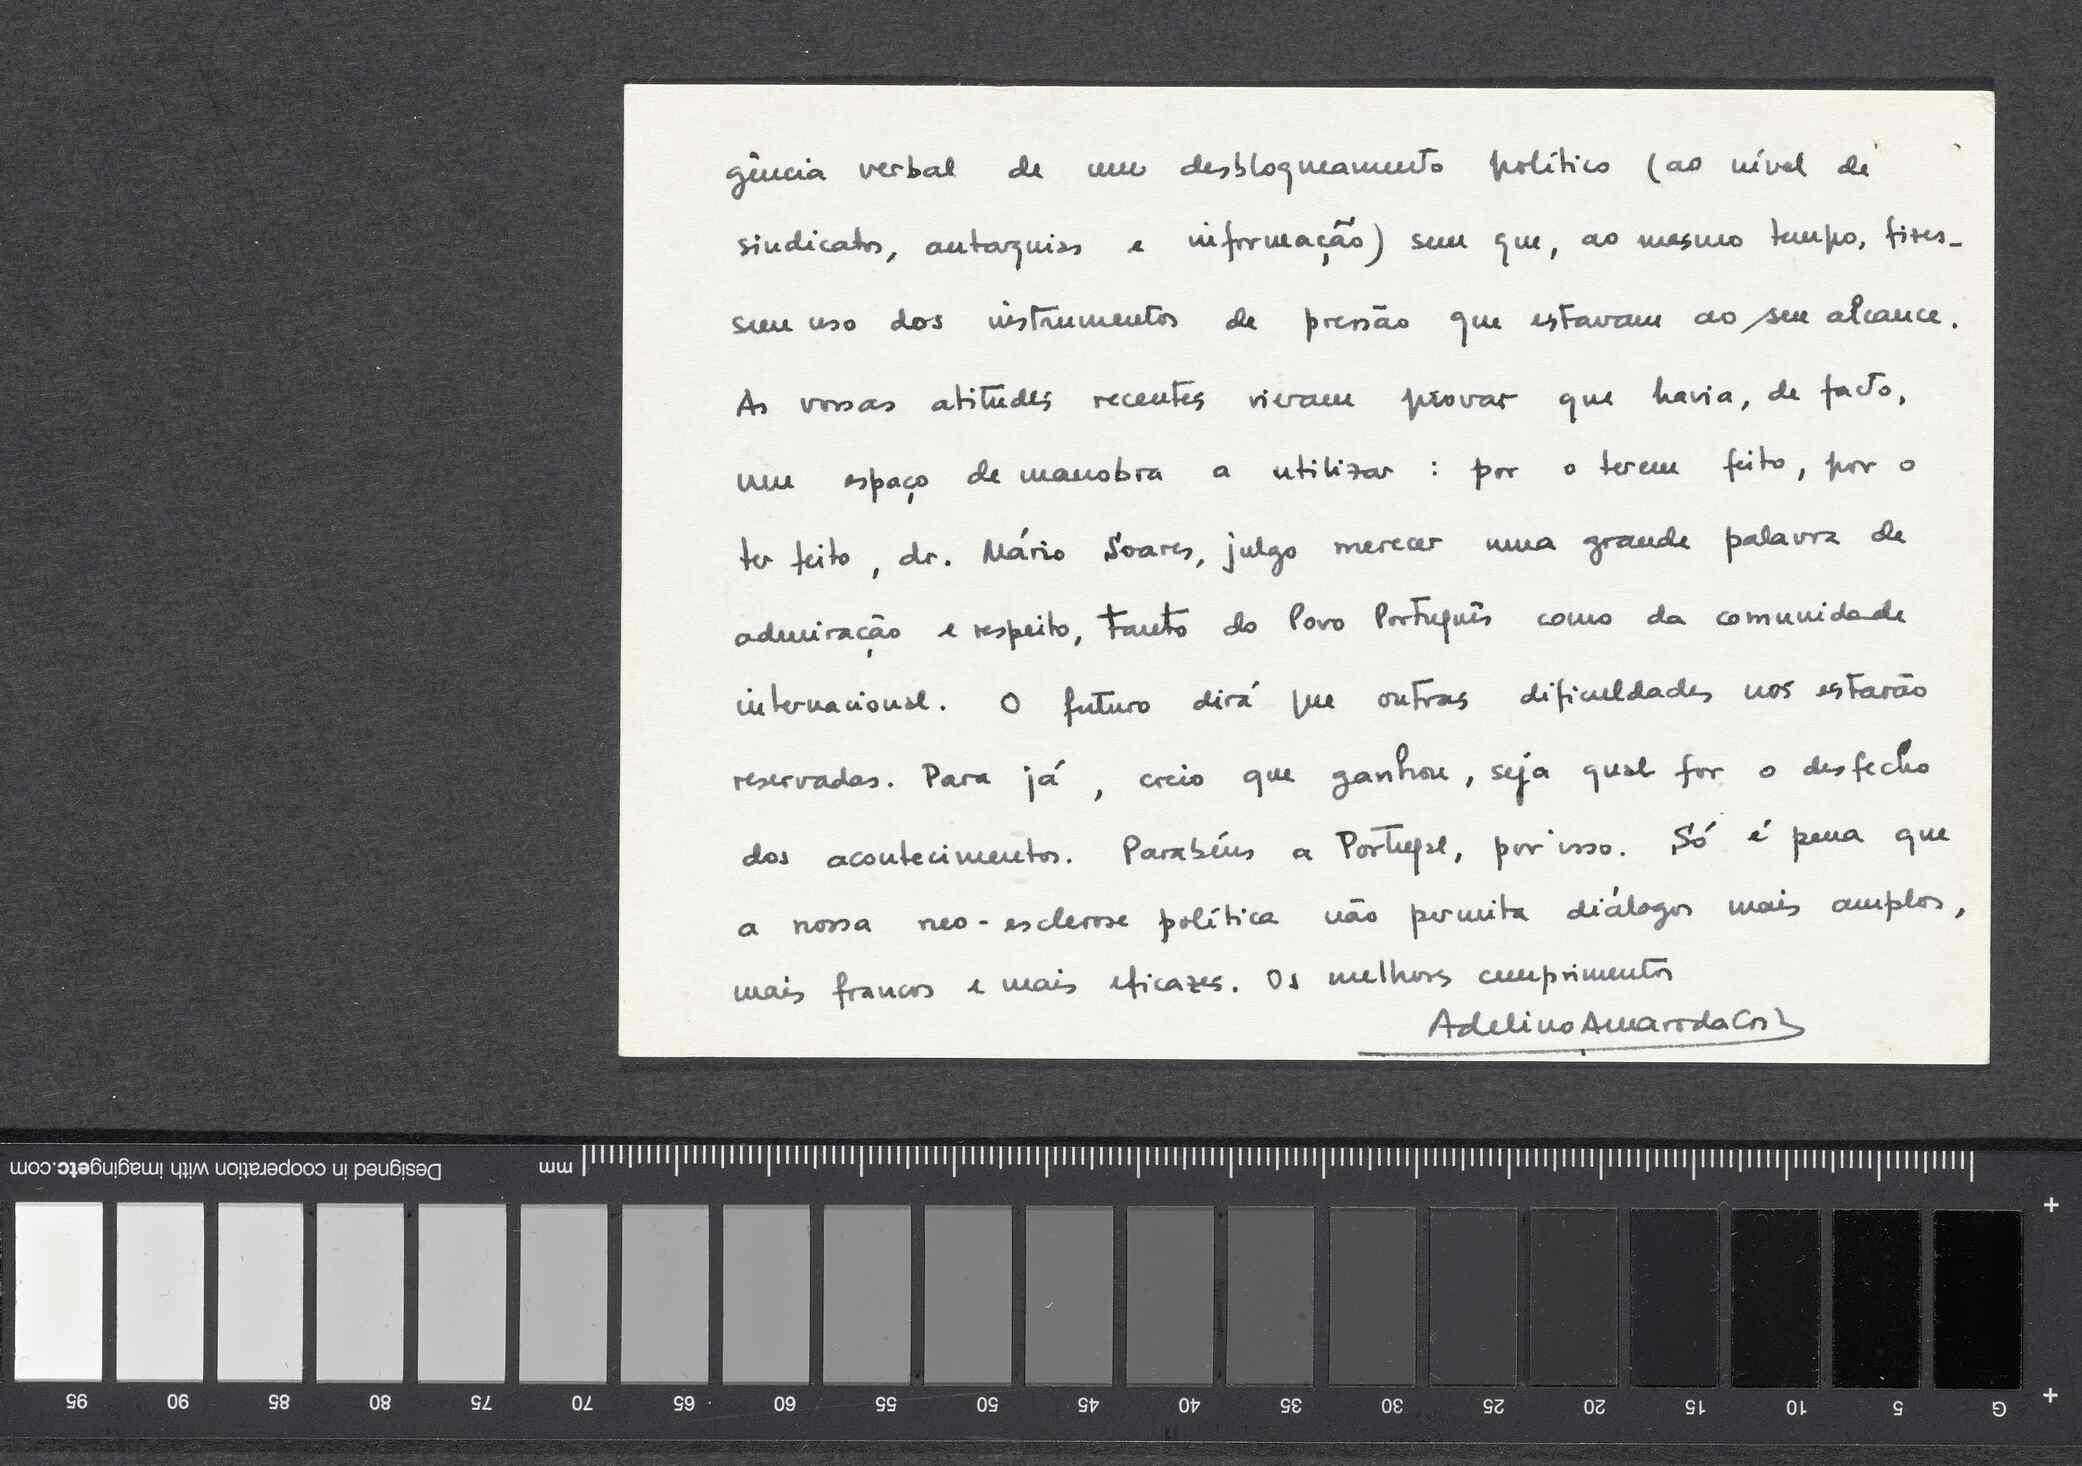 gência verbal de um desbloqueamento político (ao nível de
sindicatos, autarquias e informação) sem que, ao mesmo tempo, fizes-
sem uso dos instrumentos de pressão que estavam ao seu alcance.
As vossas atitudes recentes vieram provar que havia, de facto,
um espaço de manobra a utilizar : por o terem feito, por o
ter feito, dr. Mário Soares, julgo merecer uma grande palavra de
admiração e respeito, tanto do Povo Português como da comunidade
internacional. O futuro dirá que outras dificuldades nos estarão
reservadas. Para já, creio que ganhou, seja qual for o desfecho
dos acontecimentos. Parabéns a Portugal, por isso. Só é pena que
a nossa neo-esclerose política não permita diálogos mais amplos,
mais francos e mais eficazes. Os melhores cumprimentos
Adelino Amaro da Costa
Designed in cooperation with imagingetc.com mm
95 90 85 80 75 70 65 60 55 50 45 40 35 30 25 20 15 10 5 G